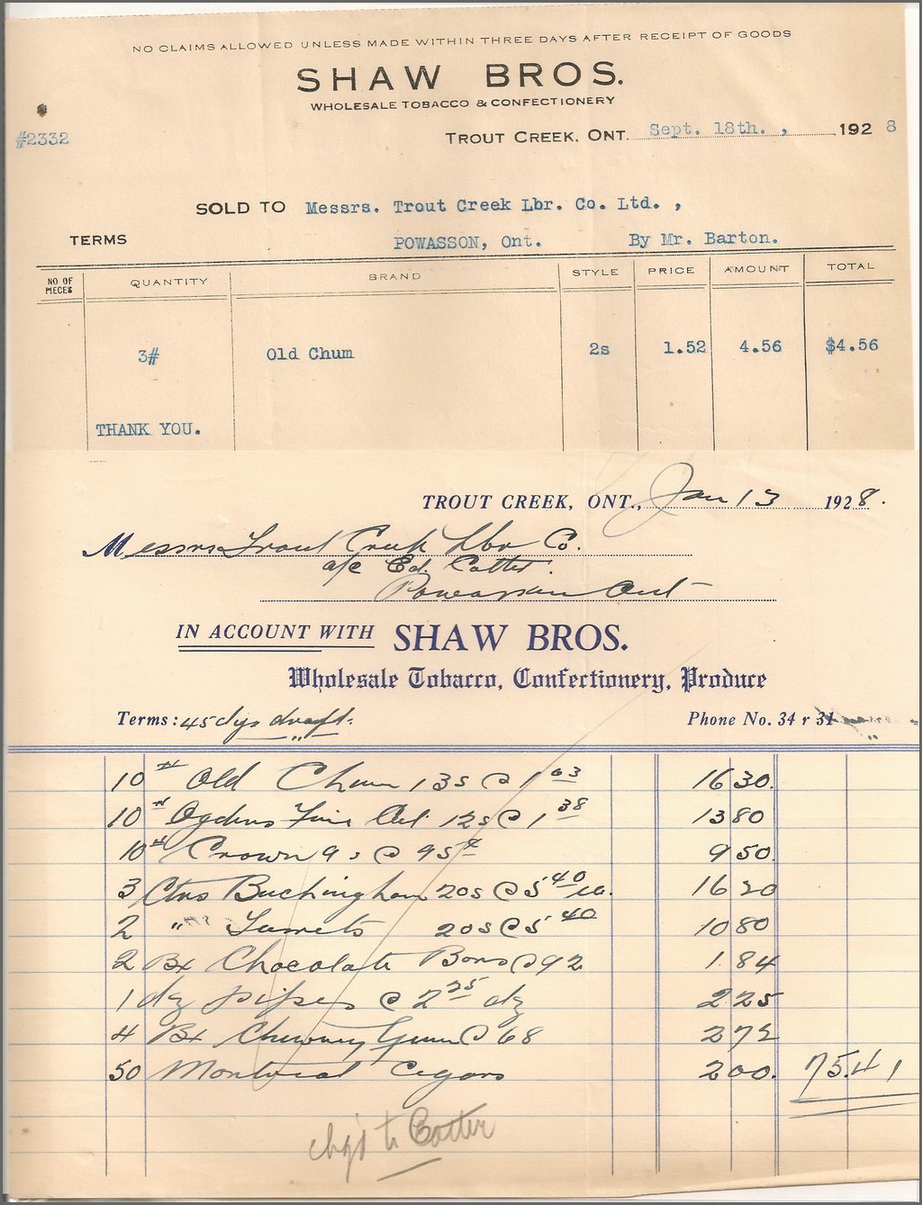 NO CLAIMS ALLOWED UNLESS MADE WITHIN THREE DAYS AFTER RECEIPT OF GOODS
SHAW BROS.
WHOLESALE TOBACCO & CONFECTIONERY
#2332
TROUT CREEK, ONT. Sept. 18th. , 192 8
SOLD TO Messrs. Trout Creek Lbr. Co. Ltd. ,
TERMS POWASSON, Ont. By Mr. Barton.
NO OF PIECES QUANTITY BRAND STYLE PRICE AMOUNT TOTAL
3# Old Chum 2s 1.52 4.56 $4.56
THANK YOU.
TROUT CREEK, ONT., Jan 13 1928.
Messrs Trout Creek Lbr Co.
a/c Ed. Cotter.
Powassan Ont
IN ACCOUNT WITH SHAW BROS.
Wholesale Tobacco, Confectionery, Produce
Terms: 45 dys draft. Phone No. 34 r 31
10 # Old Chum 13s @ 1 63 16 30.
10 # Ogdens Fine Cut 12s @ 1 38 13 80
10 # Crown 9s @ 95¢ 9 50.
3 Ctns Buckingham 20s @ 5 40 ea. 16 20
2 " Turrets 20s @ 5 40 10 80
2 Bx Chocolate Bars @ 92 1.84
1 dz pipes @ 2 25 dz 2 25
4 Bx Chewing Gum @ 68 2 72
50 Montreal Cigars 2 00. 75.41
chg'd to Cotter